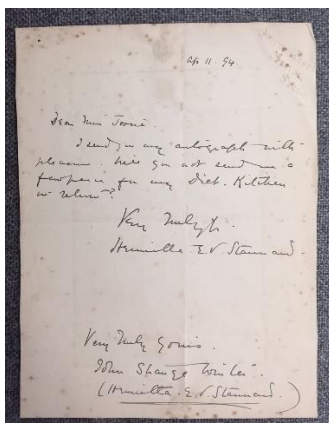 Ap 11 94.
Dear Miss
I send you my autograph with
pleasure. Will you not send me a
few pence for my Diet. Kitchen
in return?
Very truly yrs.
Henrietta. E. V. Stannard.
Very truly yours.
John Strange Winter.
(Henrietta. E. V. Stannard.)